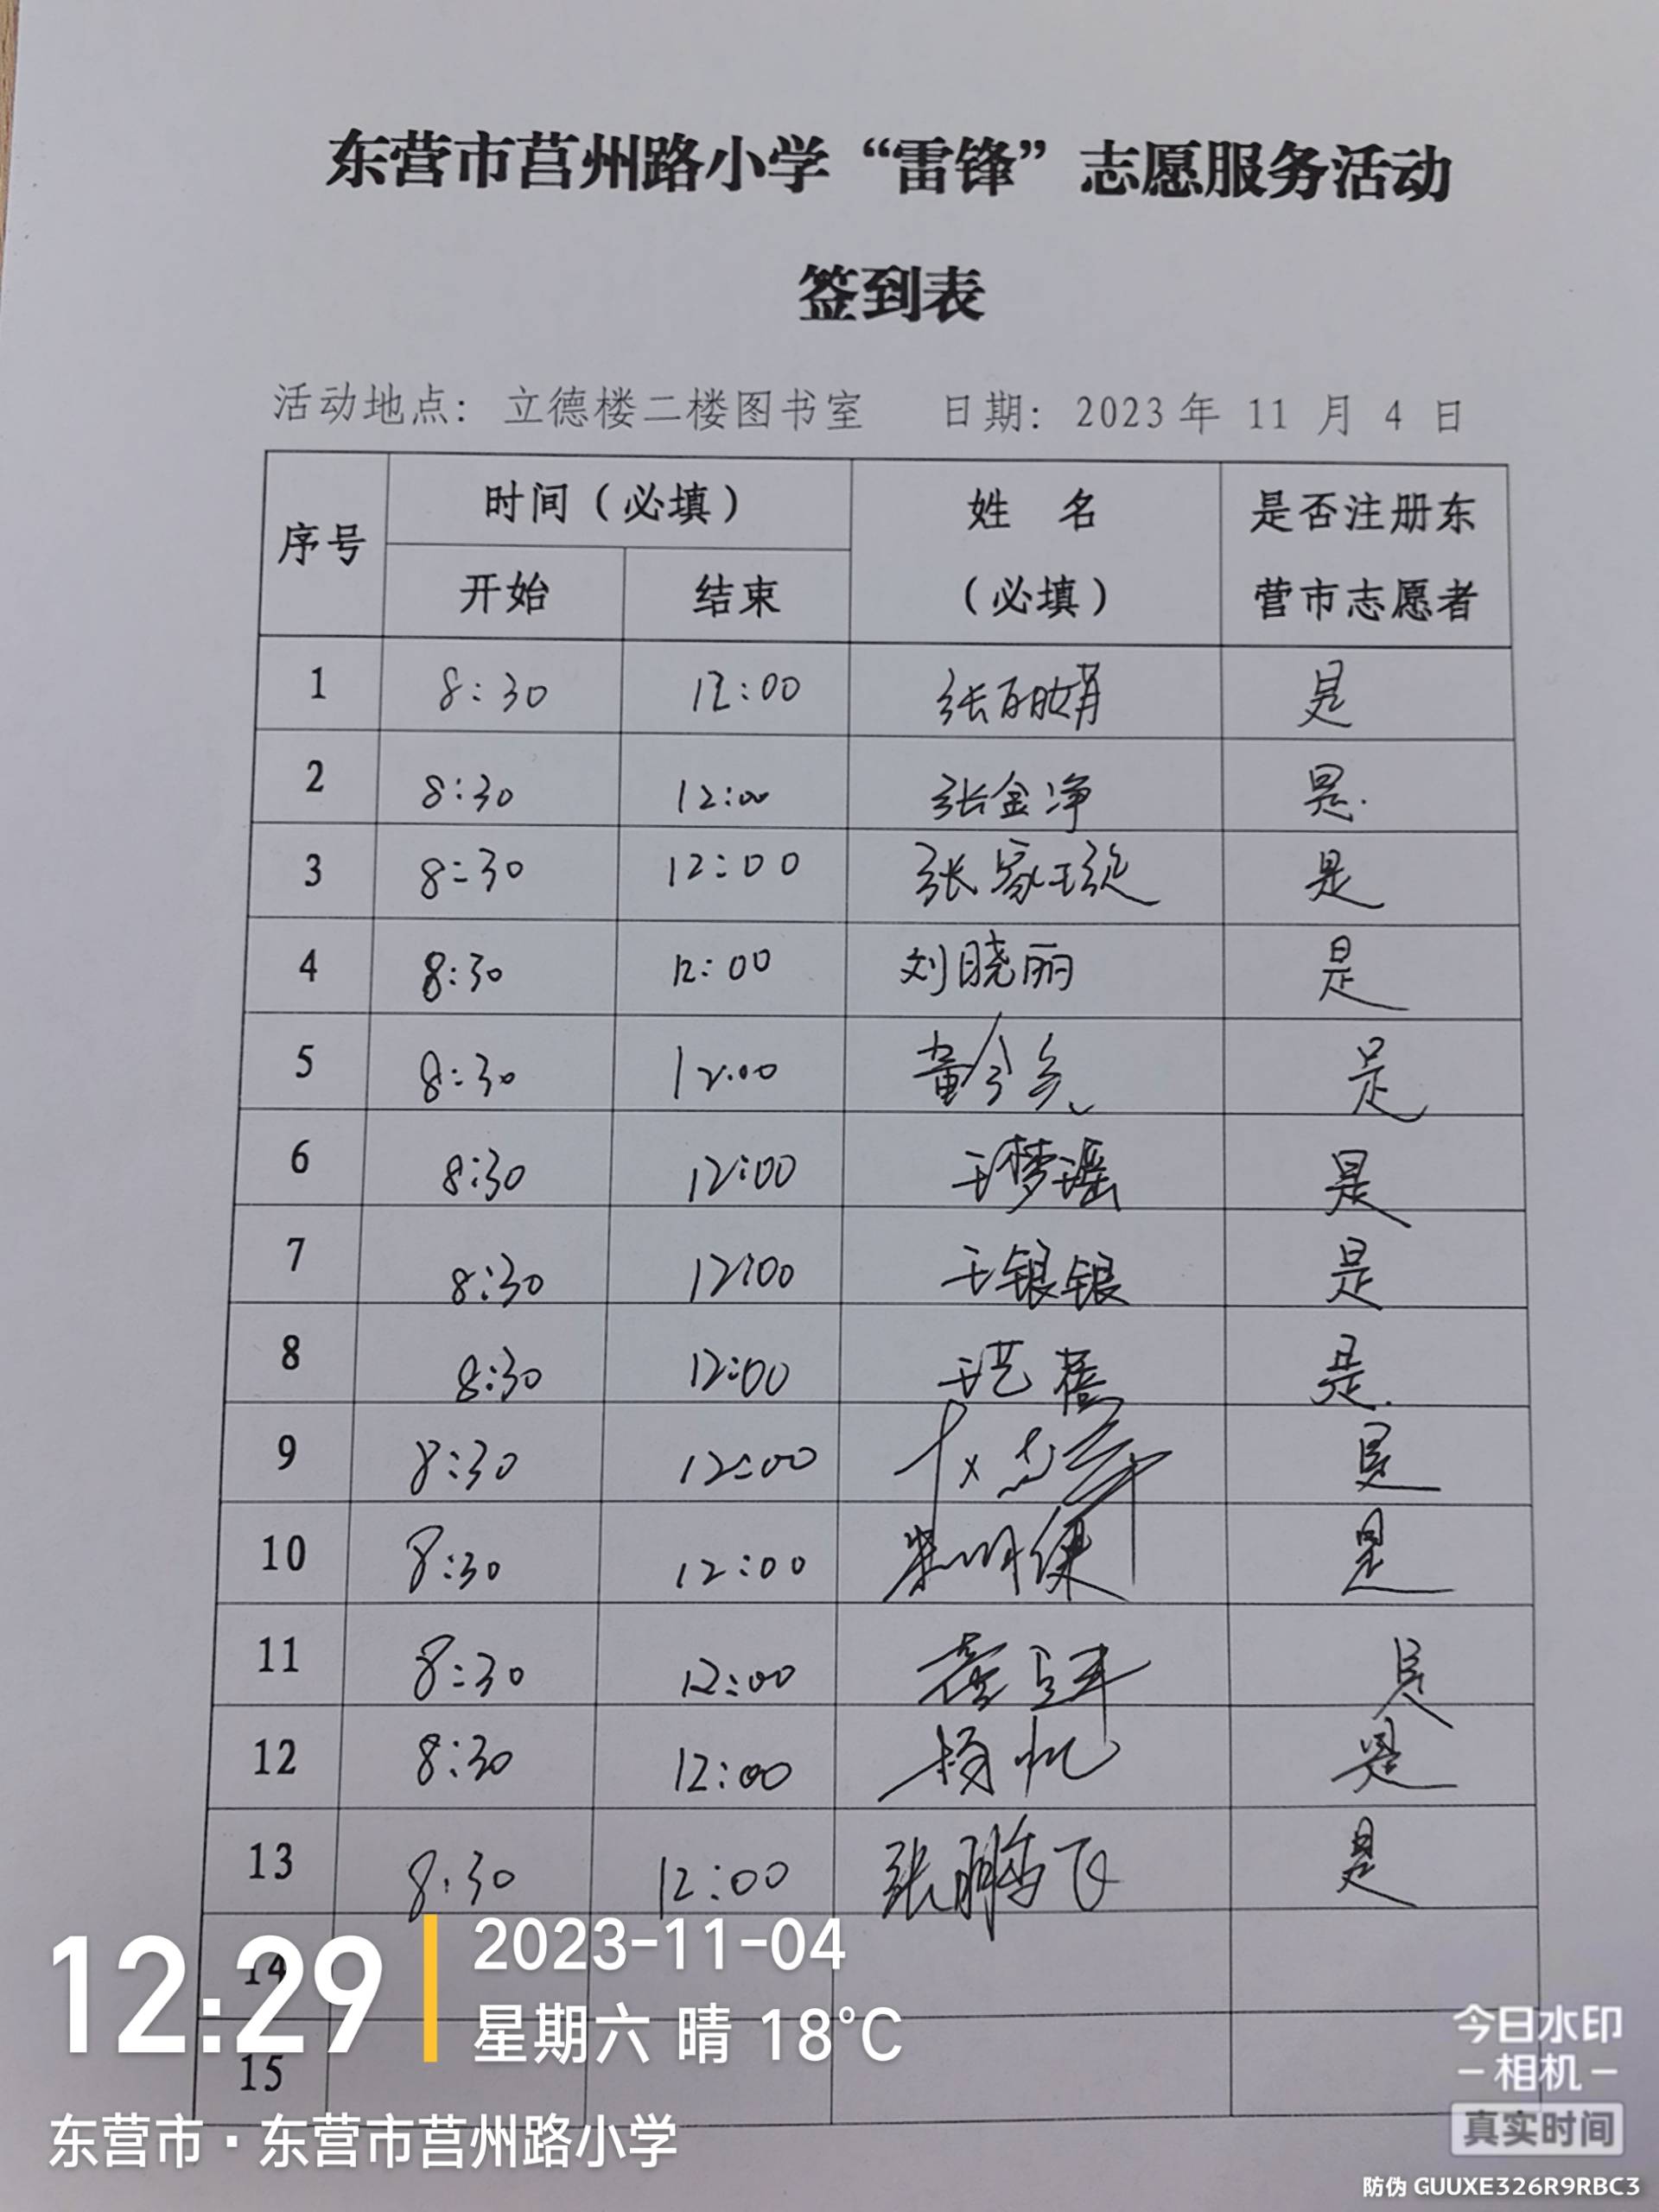 东营市莒州路小学“雷锋”志愿服务活动
签到表
活动地点：立德楼二楼图书室 日期：2023年 11 月 4 日
序号 时间（必填） 姓 名（必填） 是否注册东营市志愿者
开始 结束
1 8:30 12:00 张 娟 是
2 8:30 12:00 张金净 是.
3 8:30 12:00 张家璇 是
4 8:30 12:00 刘晓丽 是
5 8:30 12:00 董 是
6 8:30 12:00 王梦瑶 是
7 8:30 12:00 王银银 是
8 8:30 12:00 王艺蓓 是.
9 8:30 12:00 是
10 8:30 12:00 是
11 8:30 12:00 是
12 8:30 12:00 杨帆 是
13 8:30 12:00 张鹏飞 是
14
15
12:29
2023-11-04
星期六 晴 18°C
东营市·东营市莒州路小学
今日水印
-相机-
真实时间
防伪 GUUXE326R9RBC3